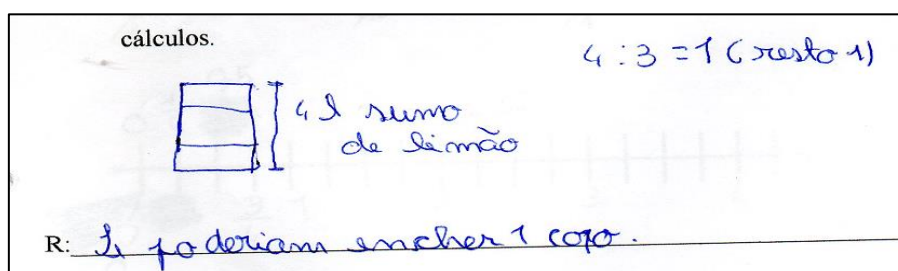 cálculos.
4 : 3 = 1 (resto 1)
4 l sumo
de limão
R: poderiam encher 1 copo.